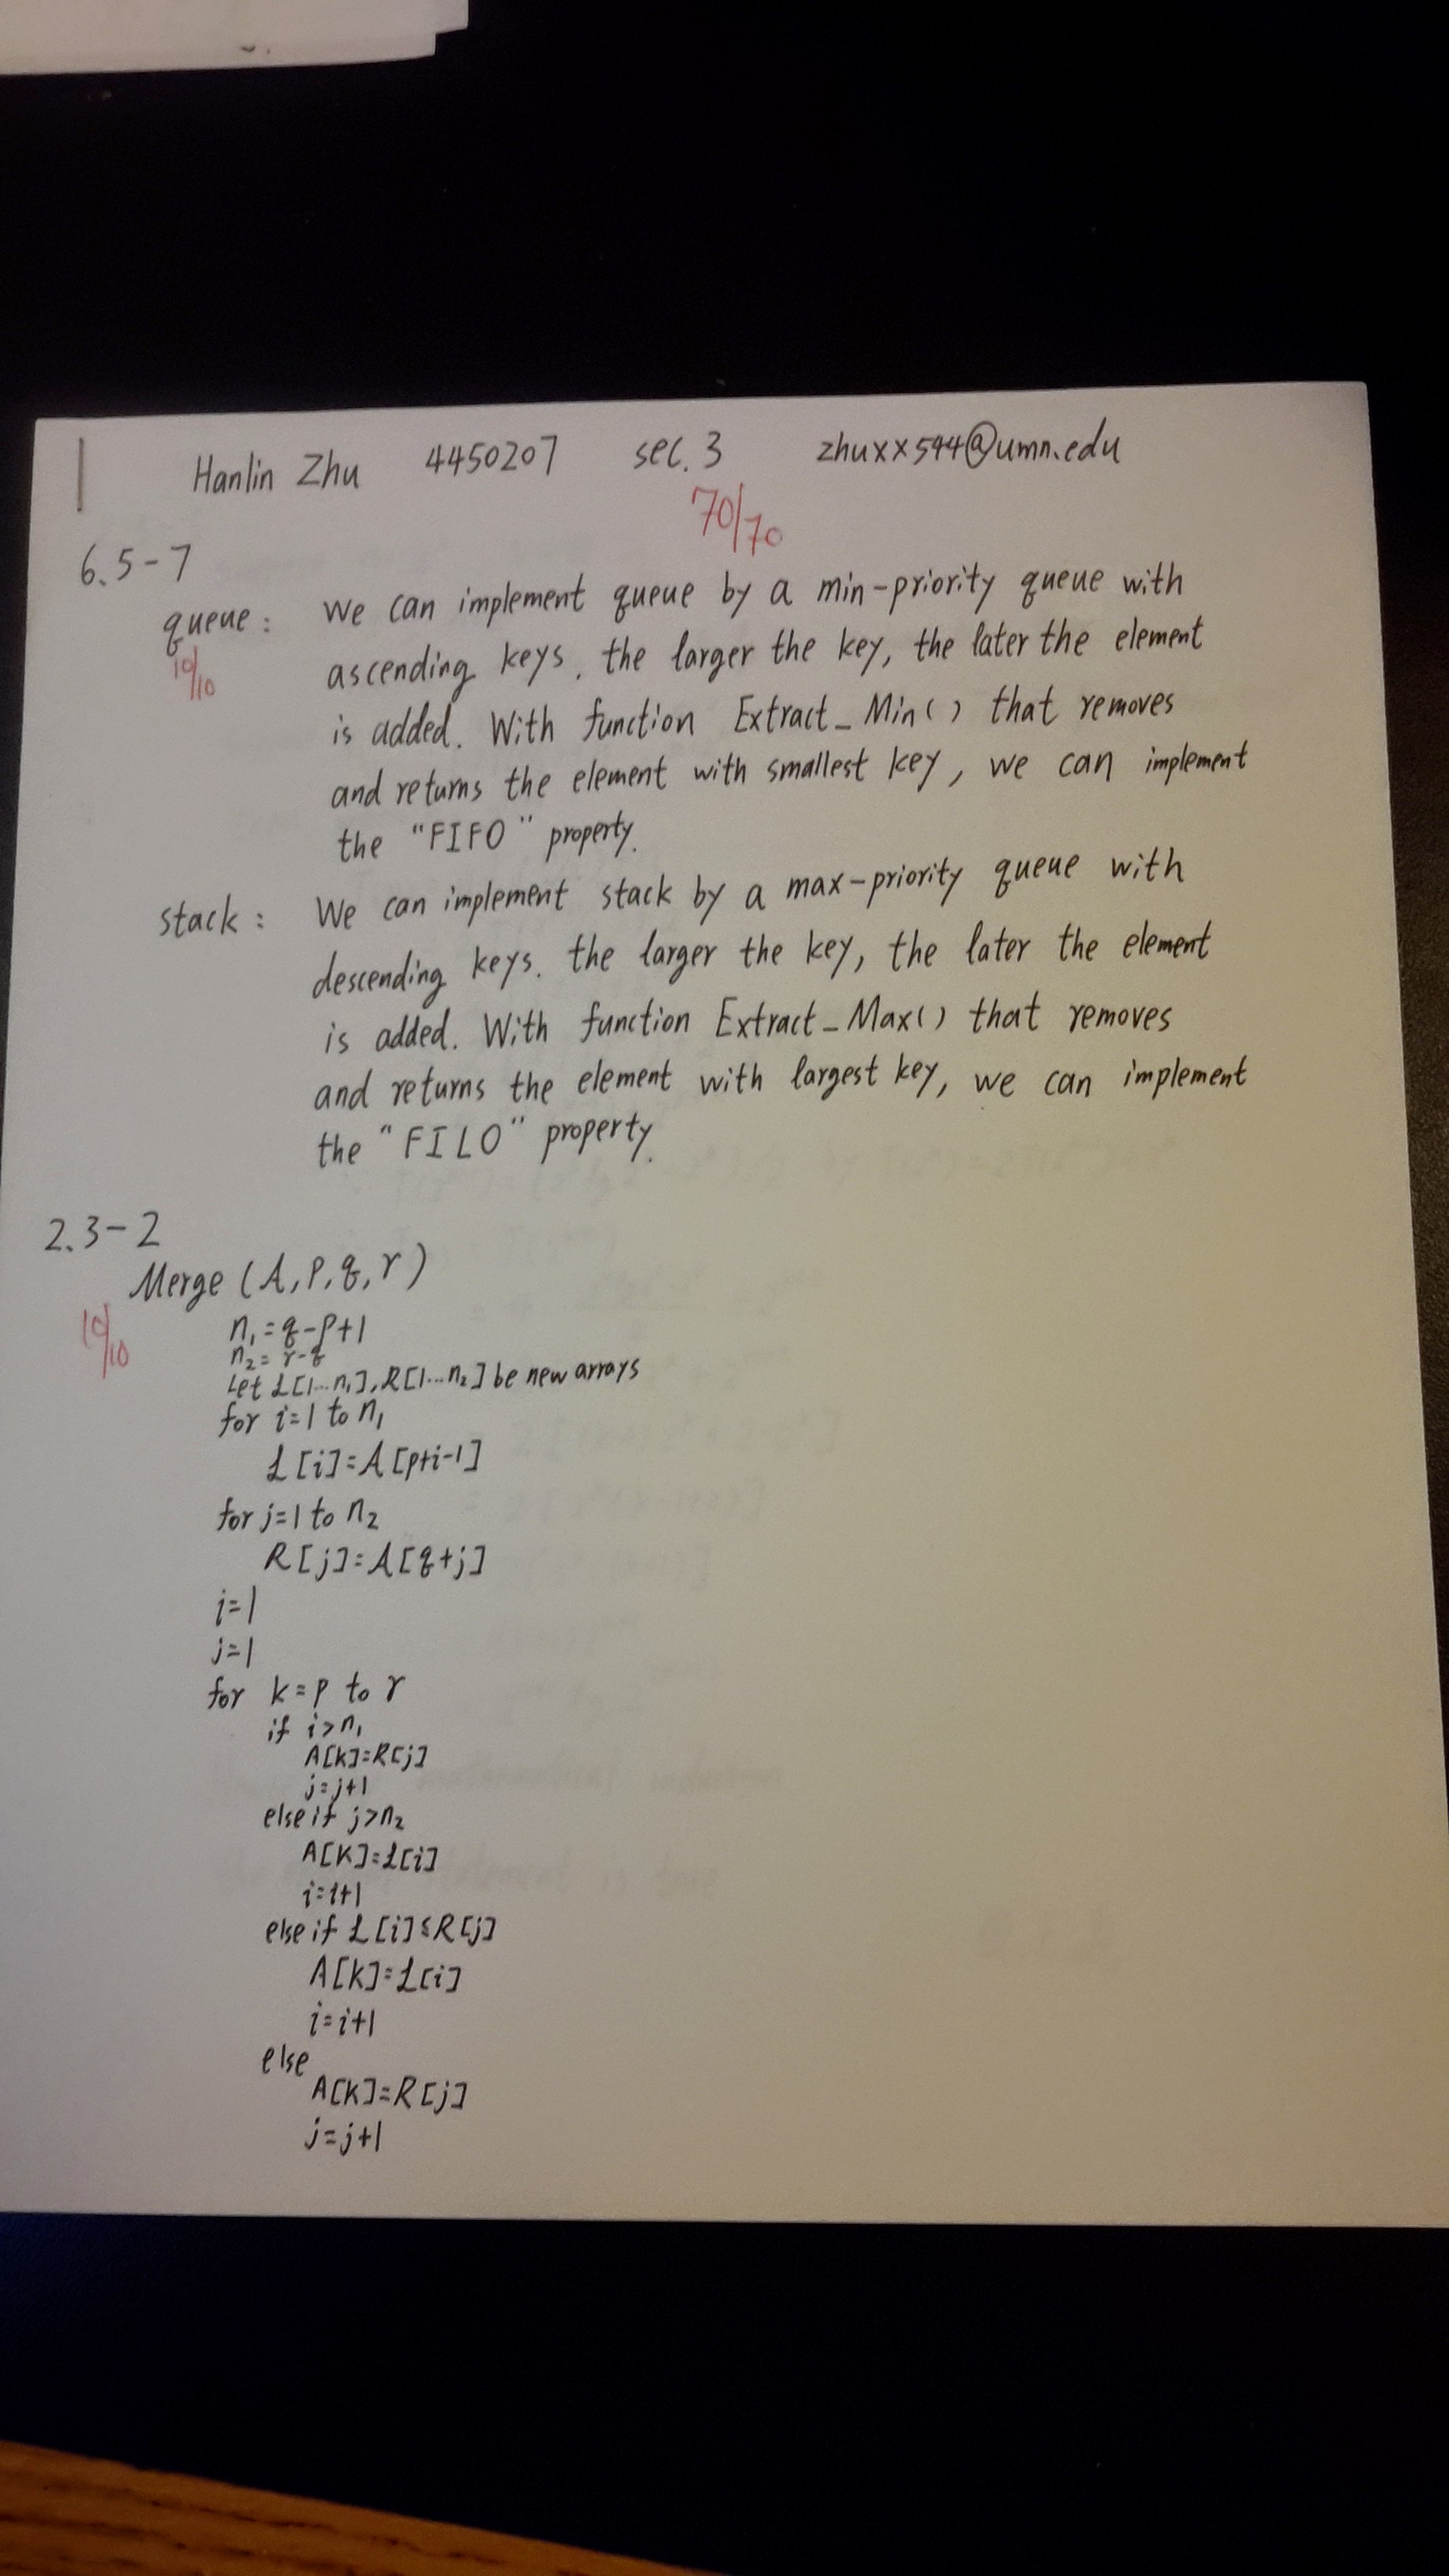 Hanlin Zhu 4450207 sec. 3 zhuxx594@umn.edu
70/70
6.5-7
queue: We can implement queue by a min-priority queue with
10/10
ascending keys. the larger the key, the later the element
is added. With function Extract_Min() that removes
and returns the element with smallest key, we can implement
the "FIFO" property.
stack: We can implement stack by a max-priority queue with
descending keys. the larger the key, the later the element
is added. With function Extract_Max() that removes
and returns the element with largest key, we can implement
the "FILO" property.
2.3-2
Merge (A, p, q, r)
10/10
n₁=q-p+1
n₂=r-q
Let L[1...n₁], R[1...n₂] be new arrays
for i=1 to n₁
L[i]=A[p+i-1]
for j=1 to n₂
R[j]=A[q+j]
i=1
j=1
for k=p to r
if i>n₁
A[k]=R[j]
j=j+1
else if j>n₂
A[k]=L[i]
i=i+1
else if L[i]≤R[j]
A[k]=L[i]
i=i+1
else
A[k]=R[j]
j=j+1